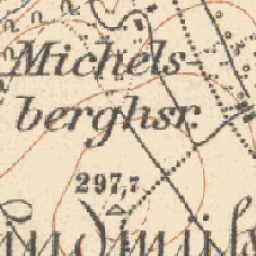 Michels-
berghsr.
297,7